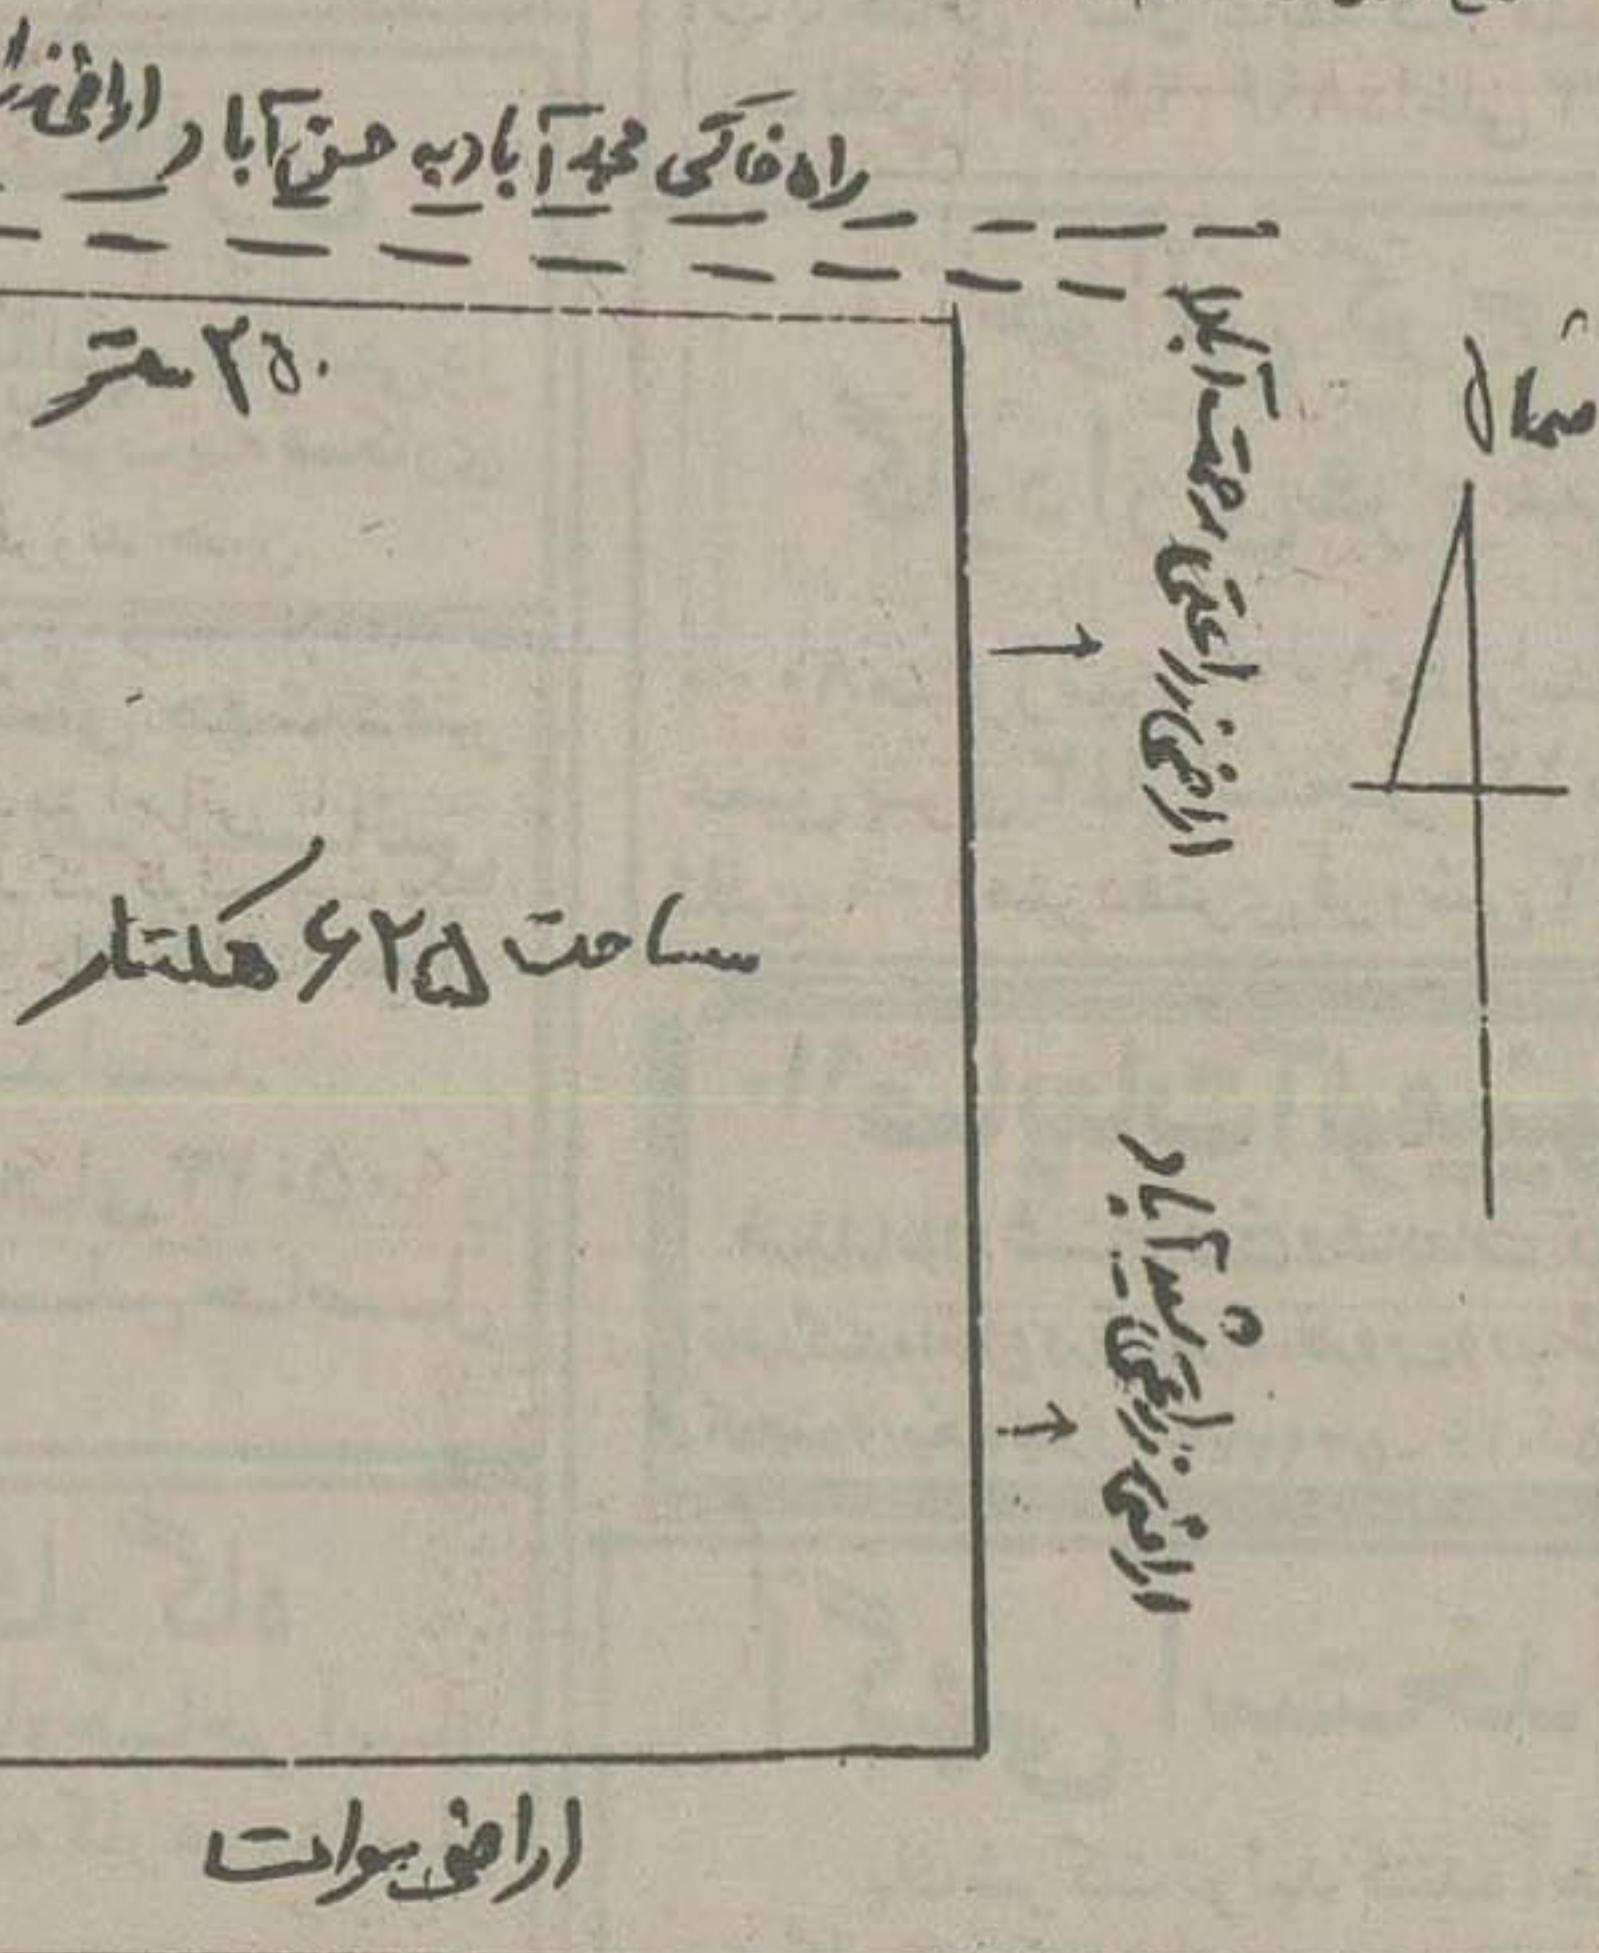 راه خاکی محمد آباد به حسن آباد اراضی
۲۵۰۰ متر
شمال
اراضی زراعتی رحمت آباد
مساحت ۶۲۵ هکتار
اراضی زراعتی سعید آباد
اراضی موات